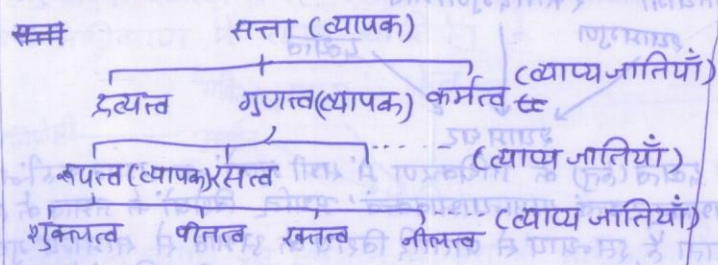 सत्ता सत्ता (व्यापक)
द्रव्यत्व गुणत्व(व्यापक) कर्मत्व (व्याप्य जातियाँ)
रूपत्व(व्यापक) रसत्व ------- (व्याप्य जातियाँ)
शुक्लत्व पीतत्व रक्तत्व नीलत्व ------ (व्याप्य जातियाँ)